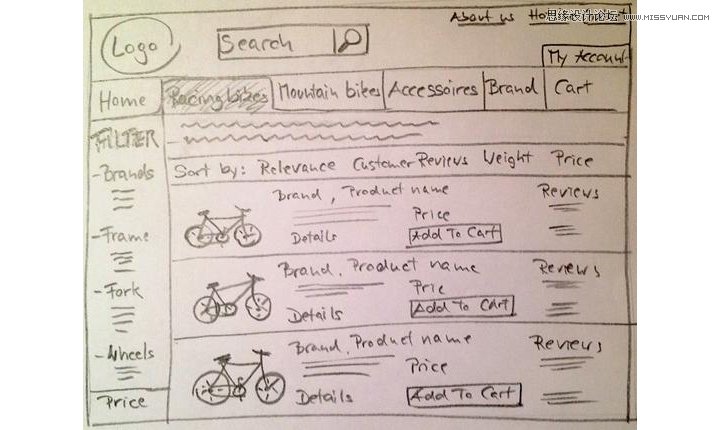 思缘设计论坛 WWW.MISSYUAN.COM
About us
Logo
Search
My Account
Home Racing bikes Mountain bikes Accessoires Brand Cart
FILTER
Sort by: Relevance Customer Reviews Weight Price
-Brands
Brand, Product name Reviews
Price
Details Add To Cart
-Frame
Brand, Product name Reviews
Price
Details Add To Cart
-Fork
Brand, Product name Reviews
-Wheels
Price
Details Add To Cart
Price